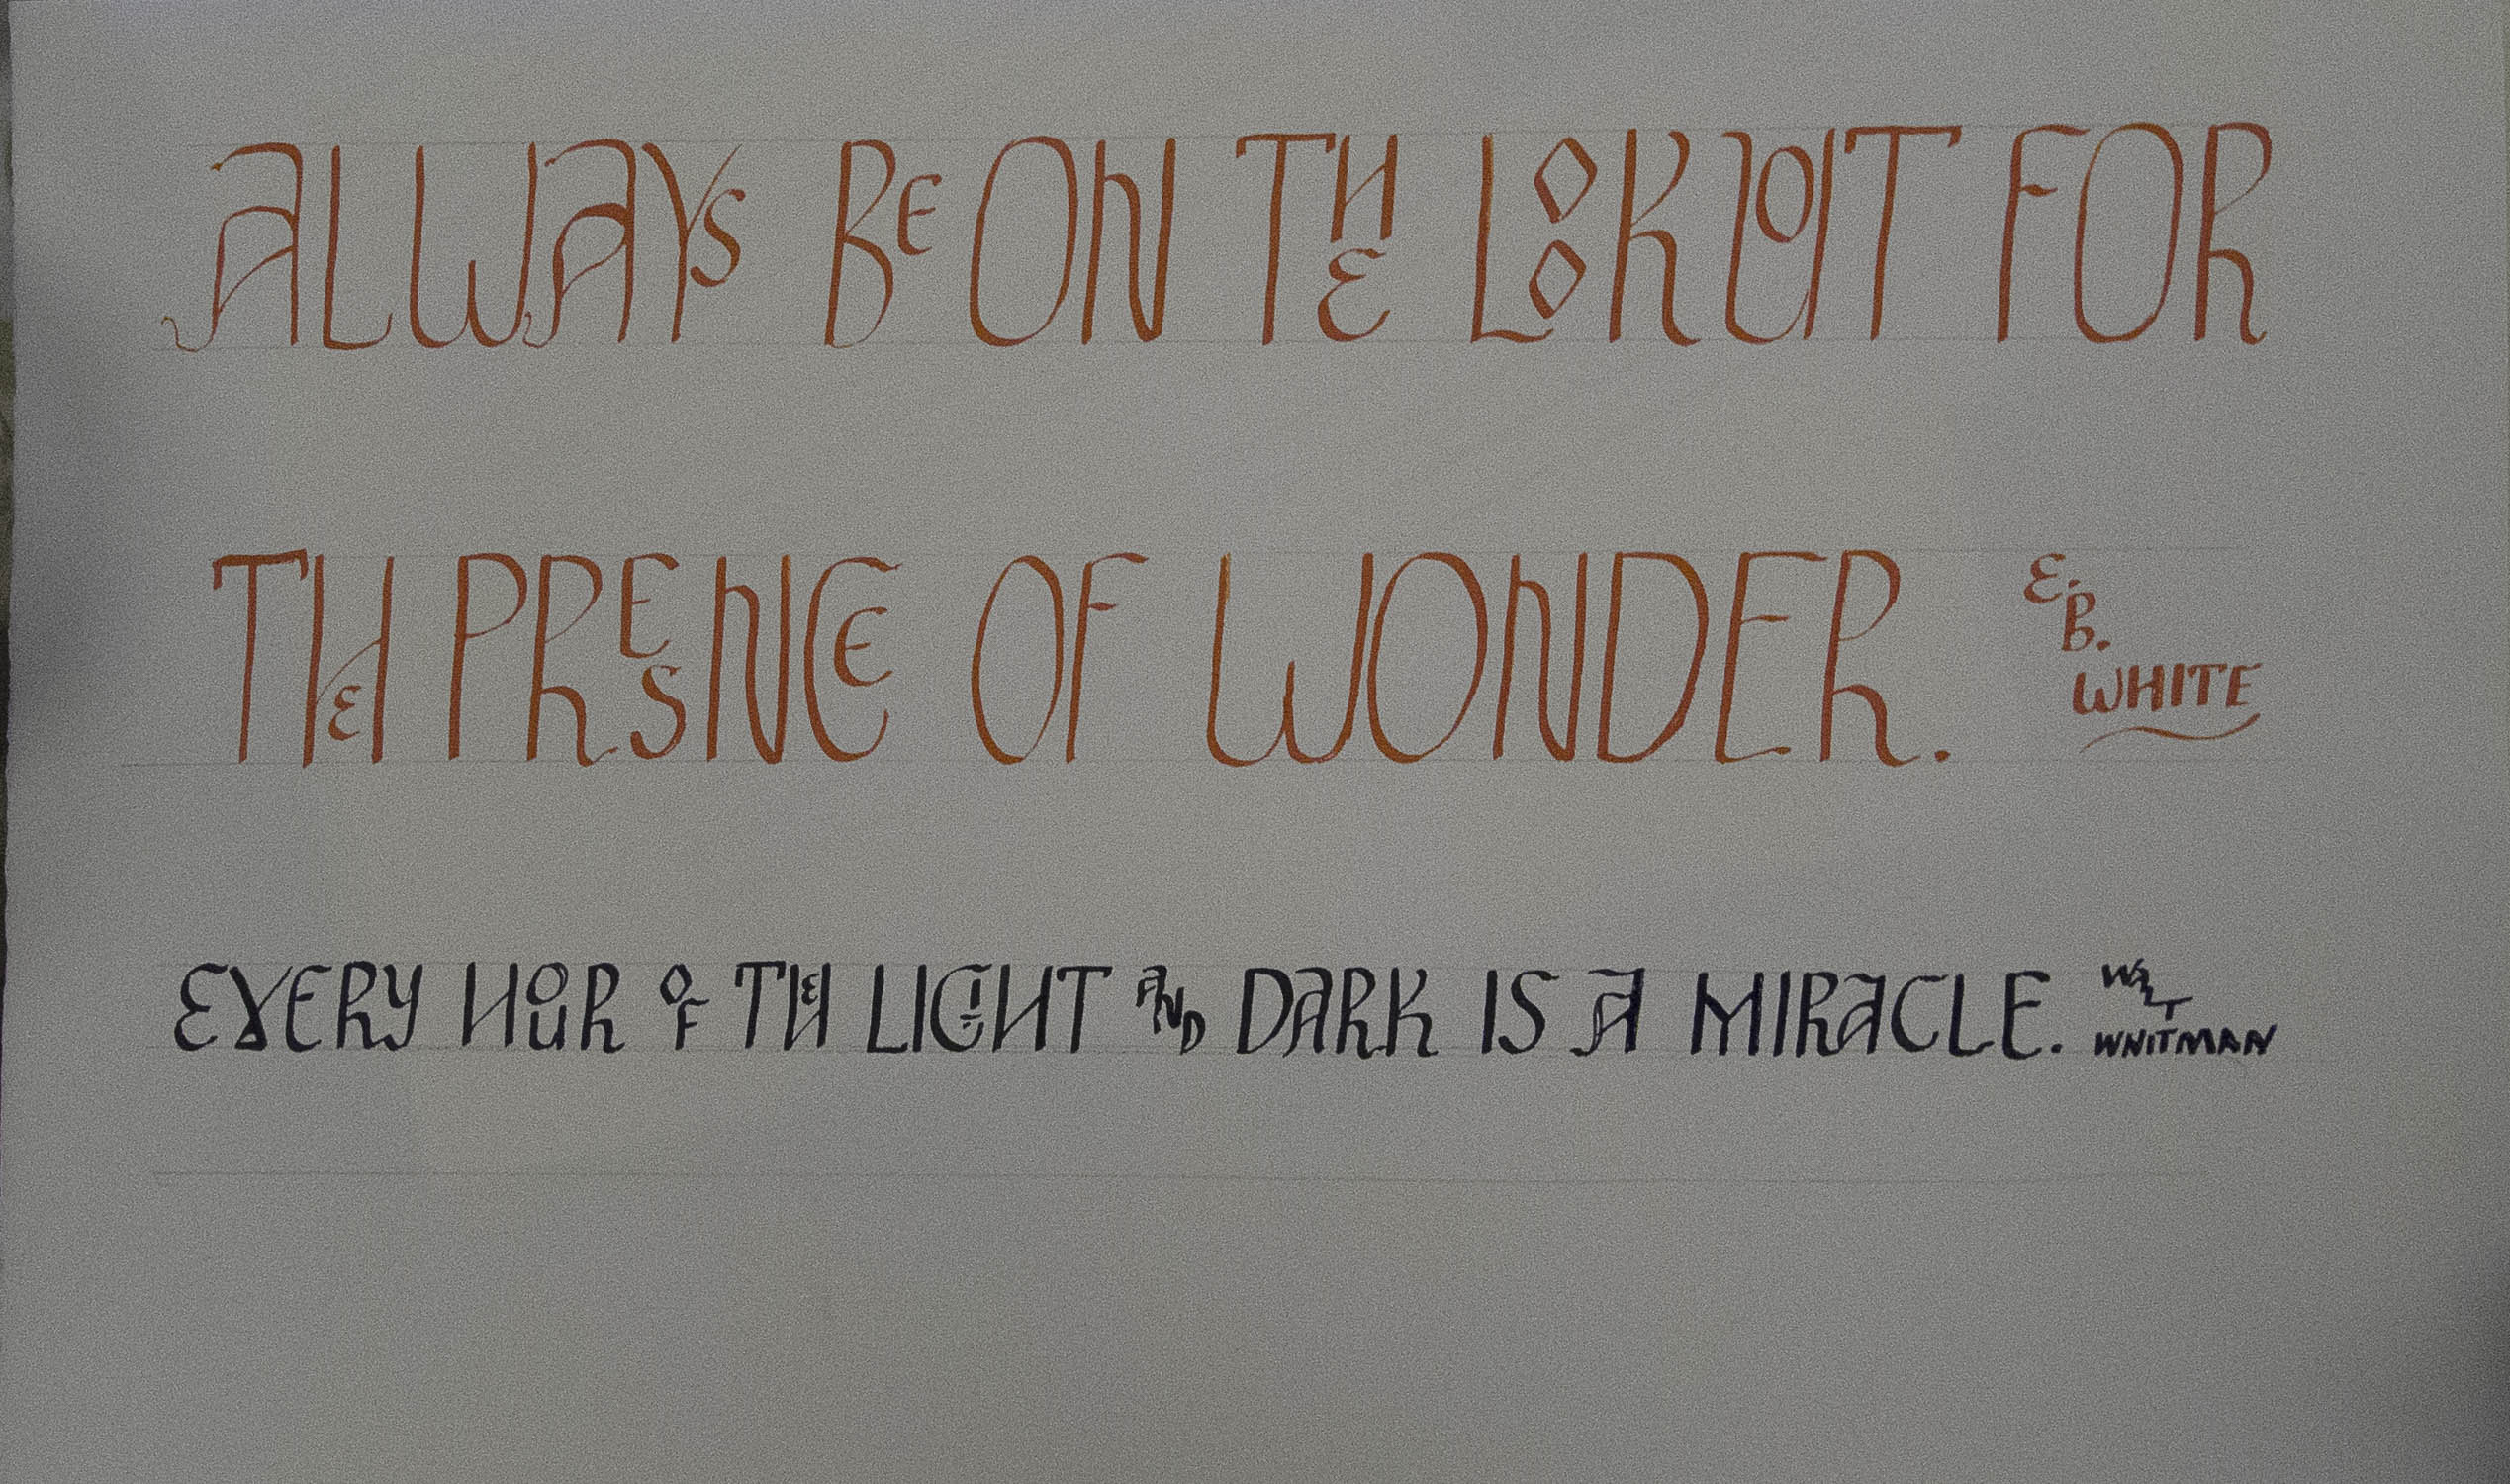 ALWAYS BE ON THE LOOKOUT FOR
THE PRESENCE OF WONDER.
E.
B.
WHITE
EVERY HOUR OF THE LIGHT AND DARK IS A MIRACLE.
WALT
WHITMAN